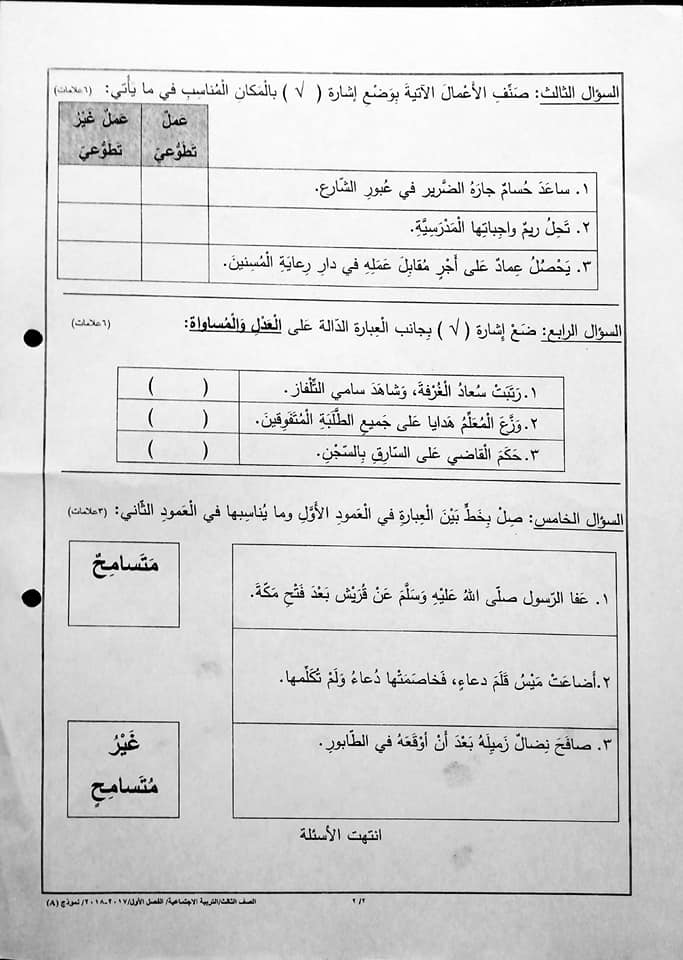 السؤال الثالث: صَنِّفِ الأَعْمالَ الآتيةَ بِوَضْعِ إشارة ( √ ) بالْمَكانِ الْمُناسِبِ في ما يَأْتي: (٦علامات)
عَملٌ تَطَوُّعيّ
عَملٌ غَيْرُ تَطَوُّعيّ
١. ساعَدَ حُسامٌ جارَهُ الضَّرير في عُبورِ الشّارع.
٢. تَحِلُ ريمٌ واجِباتِها الْمَدْرَسِيَّةِ.
٣. يَحْصُلُ عِمادٌ عَلى أَجْرٍ مُقابِلَ عَمَلِهِ في دارِ رِعايَةِ الْمُسِنينَ.
السؤال الرابع: ضَعْ إِشارة ( √ ) بِجانب الْعِبارة الدّالة عَلى الْعَدْلِ وَالْمُساواة: (٦علامات)
١. رَتَبَتْ سُعادُ الْغُرْفةَ، وَشاهَدَ سامي التِّلْفاز. ( )
٢. وَزَّعَ الْمُعَلِّمُ هَدايا عَلى جَميعِ الطَّلَبَةِ الْمُتَفَوِقينَ. ( )
٣. حَكَمَ الْقاضي عَلى السّارِقِ بِالسّجْنِ. ( )
السؤال الخامس: صِلْ بِخَطٍّ بَيْنَ الْعِبارةِ في الْعَمودِ الأَوَّلِ وما يُناسِبها في الْعَمودِ الثّاني: (٣علامات)
١. عَفا الرّسول صلّى اللهُ عَلَيْهِ وَسَلَّمَ عَنْ قُرَيْش بَعْدَ فَتْحِ مَكّةَ.
مُتَسامِحٌ
٢. أضاعَتْ مَيْسُ قَلَمَ دعاءٍ، فَخاصَمَتْها دُعاءُ وَلَمْ تُكَلِّمها.
٣. صافَحَ نِضالٌ زَميلَهُ بَعْدَ أَنْ أوْقَعَهُ في الطّابورِ.
غَيْرُ
مُتَسامِحٍ
انتهت الأسئلة
٢/٢
الصف الثالث/التربية الاجتماعية/ الفصل الأول/٢٠١٧-٢٠١٨/ نموذج (A)